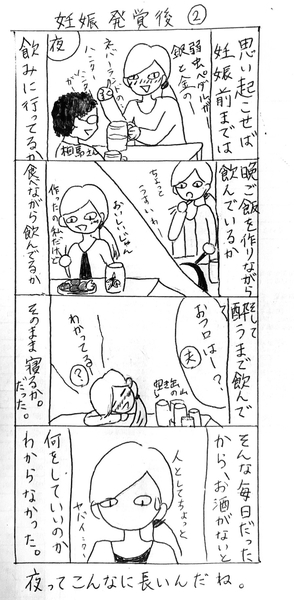 妊娠発覚後 ②
思い起こせば
妊娠前までは
弱虫ペダルが
銀と金の
ネバーランドの
ハンター
夜
飲みに行ってるか
晩ご飯を作りながら
飲んでいるか
ちょっと
うすいわー
おいしいじゃん
作ったの私だけど
食べながら飲んでるか
そして
酔うまで飲んで
おフロはー?
夫
の山
わかってる
?
そのまま寝るか。
だった。
そんな毎日だった
から、お酒がないと
人としてちょっと
ヤバイ
何をしていいのか
わからなかった。
夜ってこんなに長いんだね。